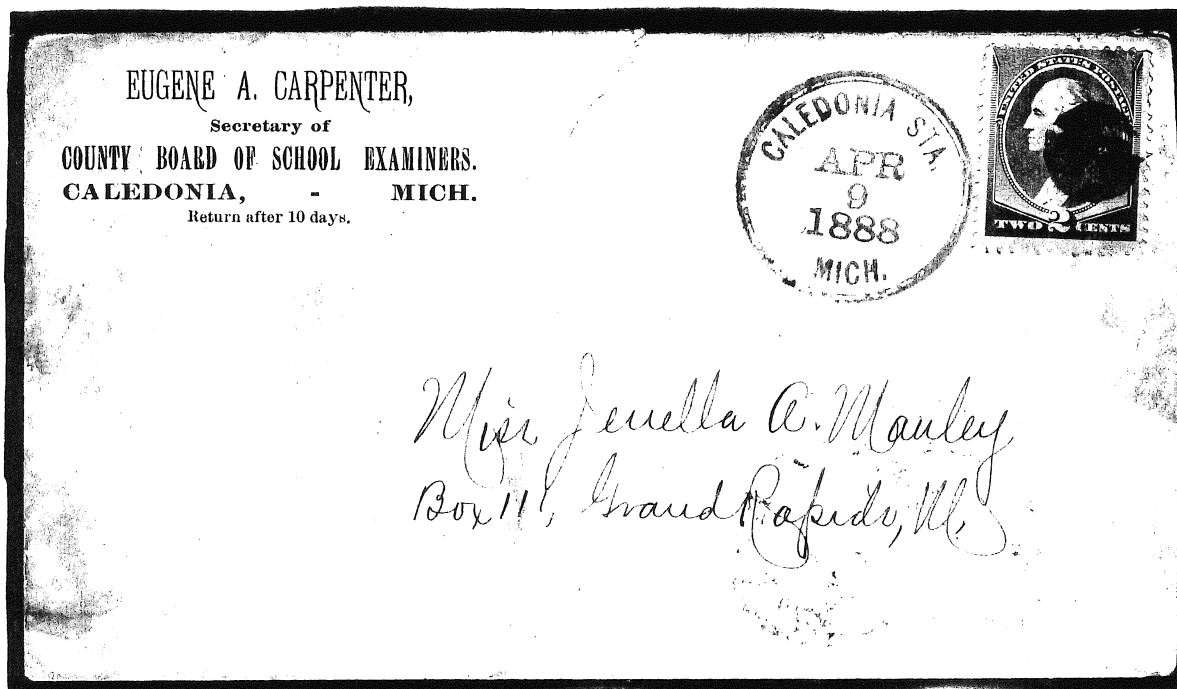 EUGENE A. CARPENTER,
Secretary of
COUNTY BOARD OF SCHOOL EXAMINERS.
CALEDONIA, - MICH.
Return after 10 days.
CALEDONIA STA.
APR
9
1888
MICH.
UNITED STATES POSTAGE
TWO 2 CENTS
Miss Jenella A. Manley
Box 111, Grand Rapids, M.